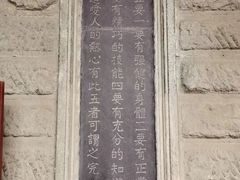 要一要有强健的身體二要有正
有精巧的技能四要有充分的知
人的熱心有此五者可謂之完